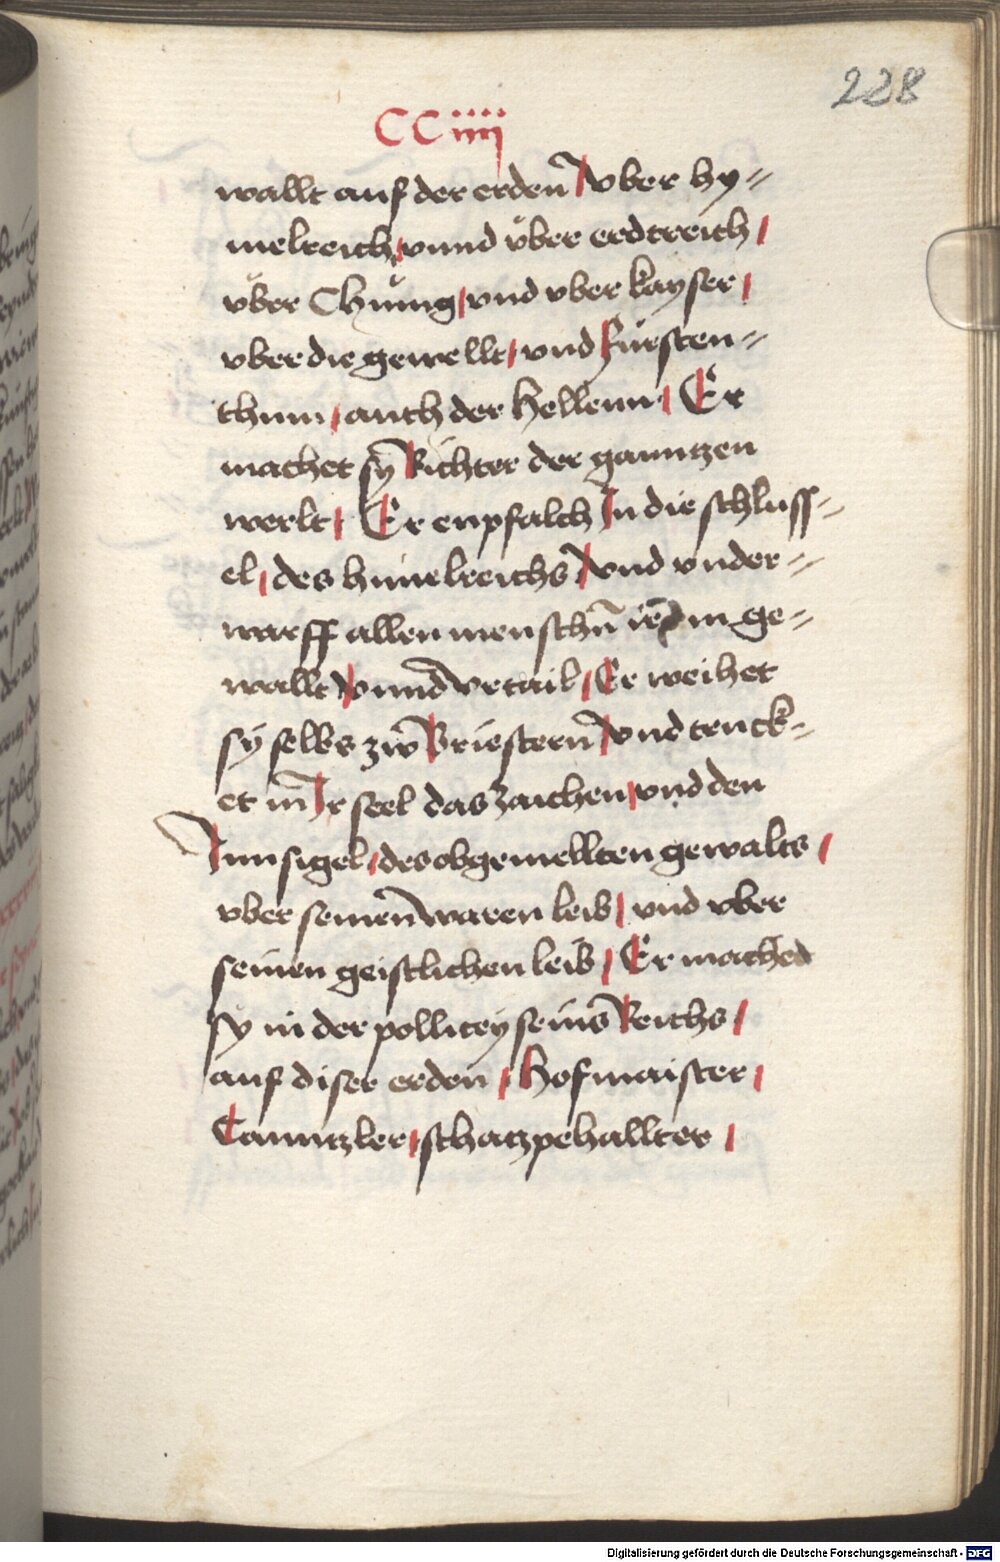 228
CCiiij
wallt auf der erden̄ / vber hy=
melreich / vnnd vber erdtreich /
vber Chünig / vnd vber kayser /
vber die gewellt / vnd Fürsten=
thum / auch der Hellenn / Er
machet sȳ Richter der ganntzen
werlt / Er enpfalch In die schluss=
el / des himelreichs / vnd vnder=
warff allen menschn̄ in ge=
wallt / vnnd vrtail / Er weihet
sy selbs zw̄ Briestern̄ / vnd truck=
et in̄ Ir seel das zaichen / vnd den
Innsigel / des obgemellten gewalts /
vber seinen̄ waren leib / vnd vber
seinen geistlichen leib / Er mached
sy in der pollicey seins̄ Reichs /
auf diser erden / Hofmaister /
Canntzler / schatzpehallter /
Digitalisierung gefördert durch die Deutsche Forschungsgemeinschaft - DFG